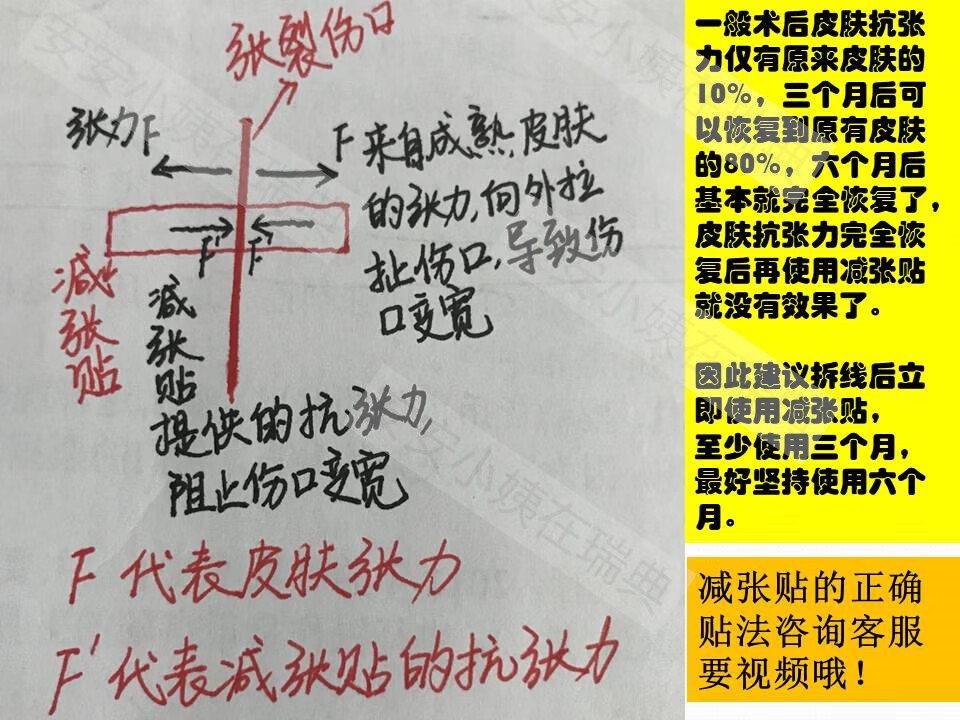 张裂伤口
张力F
F来自成熟皮肤
的张力,向外拉
扯伤口,导致伤
口变宽
F' F'
减张贴
减张贴
提供的抗张力,
阻止伤口变宽
F代表皮肤张力
F'代表减张贴的抗张力
一般术后皮肤抗张
力仅有原来皮肤的
10%，三个月后可
以恢复到原有皮肤
的80%，六个月后
基本就完全恢复了，
皮肤抗张力完全恢
复后再使用减张贴
就没有效果了。
因此建议拆线后立
即使用减张贴，
至少使用三个月，
最好坚持使用六个
月。
减张贴的正确
贴法咨询客服
要视频哦！
安安小姨在瑞典